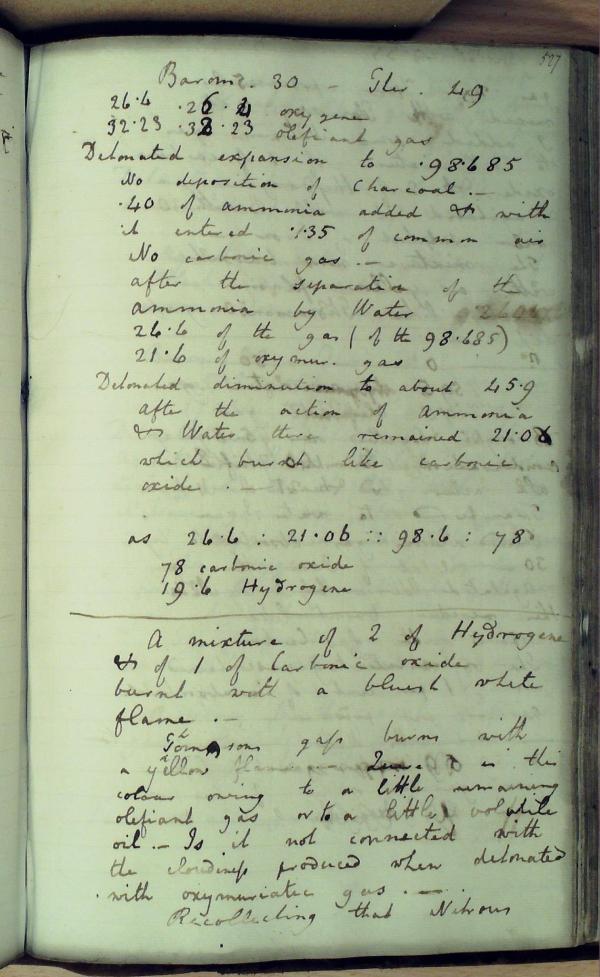 527
Barom. 30 - Ther. 49
26.4 .26.4 oxygene
32.23 .32.23 olefiant gas
Detonated expansion to .98.685
No deposition of Charcoal. -
.40 of ammonia added & with
it entered .135 of common air
No carbonic gas. -
after the separation of the
ammonia by Water
26.6 of the gas (of the 98.685)
21.6 of oxymur. gas
Detonated diminution to about 45.9
after the action of ammonia
& Water there remained 21.06
which burnt like carbonic
oxide. -
as 26.6 : 21.06 :: 98.6 : 78
78 carbonic oxide
19.6 Hydrogene
A mixture of 2 of Hydrogene
& of 1 of Carbonic oxide
burnt with a bluish white
flame. -
Thomsons gass burns with
a yellow flame - Qu. is this
colour owing to a little remaining
olefiant gas or to a little volatile
oil. - Is it not connected with
the cloudiness produced when detonated
with oxymuriatic gas. -
Recollecting that Nitrous